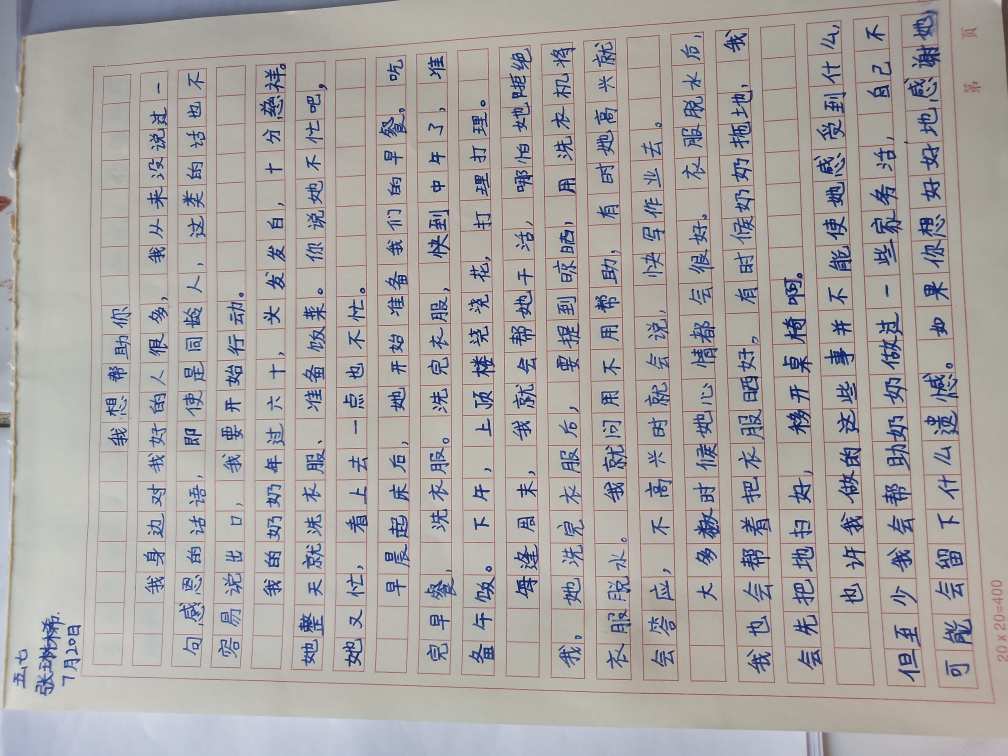 五七
7月20日
我想帮助你
我身边对我好的人很多,我从来没说过一
句感恩的话语,即使是同龄人,这类的话也不
容易说出口,我要开始行动。
我的奶奶年过六十,头发发白,十分慈祥。
她整天就洗衣服、准备饭菜。你说她不忙吧,
她又忙,看上去一点也不忙。
早晨起床后,她开始准备我们的早餐。吃
完早餐,洗衣服。洗完衣服,快到中午了,准
备午饭。下午,上顶楼浇浇花,打理打理。
每逢周末,我就会帮她干活,哪怕她拒绝
我。她洗完衣服后,要提到晾晒,用洗衣机将
衣服脱水。我就问用不用帮助,有时她高兴就
会答应,不高兴时就会说,快写作业去。
大多数时候她心情都会很好。衣服脱水后,
我也会帮着把衣服晒好。有时候奶奶拖地,我
会先把地扫好,移开桌椅啊。
也许我做的这些事并不能使她感受到什么,
但至少我会帮助奶奶做过一些家务活,自己不
可能会留下什么遗憾。如果你想好好地感谢她,
20×20=400
第 页